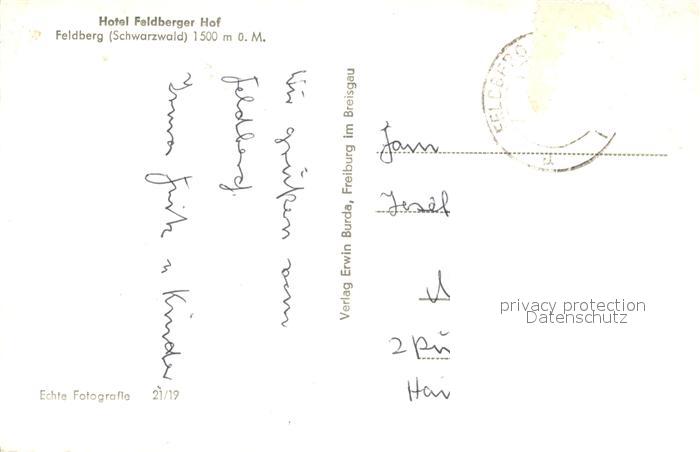 Hotel Feldberger Hof
Feldberg (Schwarzwald) 1500 m ü. M.
Wir grüßen vom
Feldberg.
Fritz u Kinder
Echte Fotografie 21/19
Verlag Erwin Burda, Freiburg im Breisgau
FELDBERG
Fam
2
Hai
privacy protection
Datenschutz